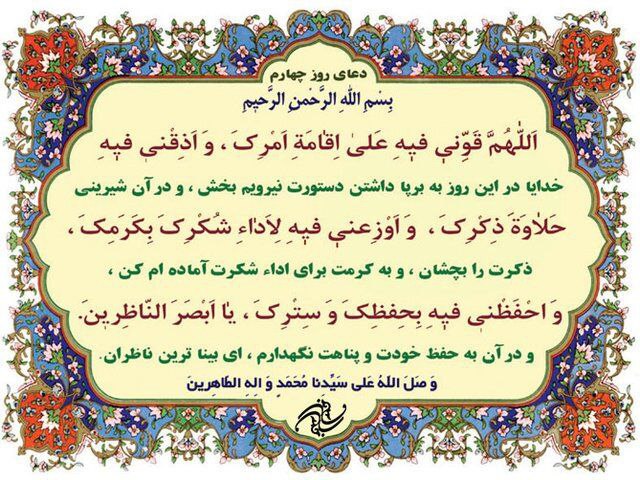 دعای روز چهارم
بِسْمِ اللهِ الرَّحْمنِ الرَّحیمِ
اَللّٰهُمَّ قَوِّنی فیهِ عَلیٰ اِقٰامَةِ اَمْرِکَ ، وَ اَذِقْنی فیهِ
خدایا در این روز به برپا داشتن دستورت نیرویم بخش ، و در آن شیرینی
حَلاٰوَةَ ذِکْرِکَ ، وَ اَوْزِعنی فیهِ لِاَدٰاءِ شُکْرِکَ بِکَرَمِکَ ،
ذکرت را بچشان ، و به کرمت برای اداء شکرت آماده ام کن ،
وَ احْفَظْنی فیهِ بِحِفظِکَ وَ سِتْرِکَ ، یٰا اَبْصَرَ النّٰاظِرینَ.
و در آن به حفظ خودت و پناهت نگهدارم ، ای بینا ترین ناظران.
وَ صَلَ اللهُ عَلی سَیِّدِنا مُحَمَدٍ وَ الِهِ الطّاهِرینَ